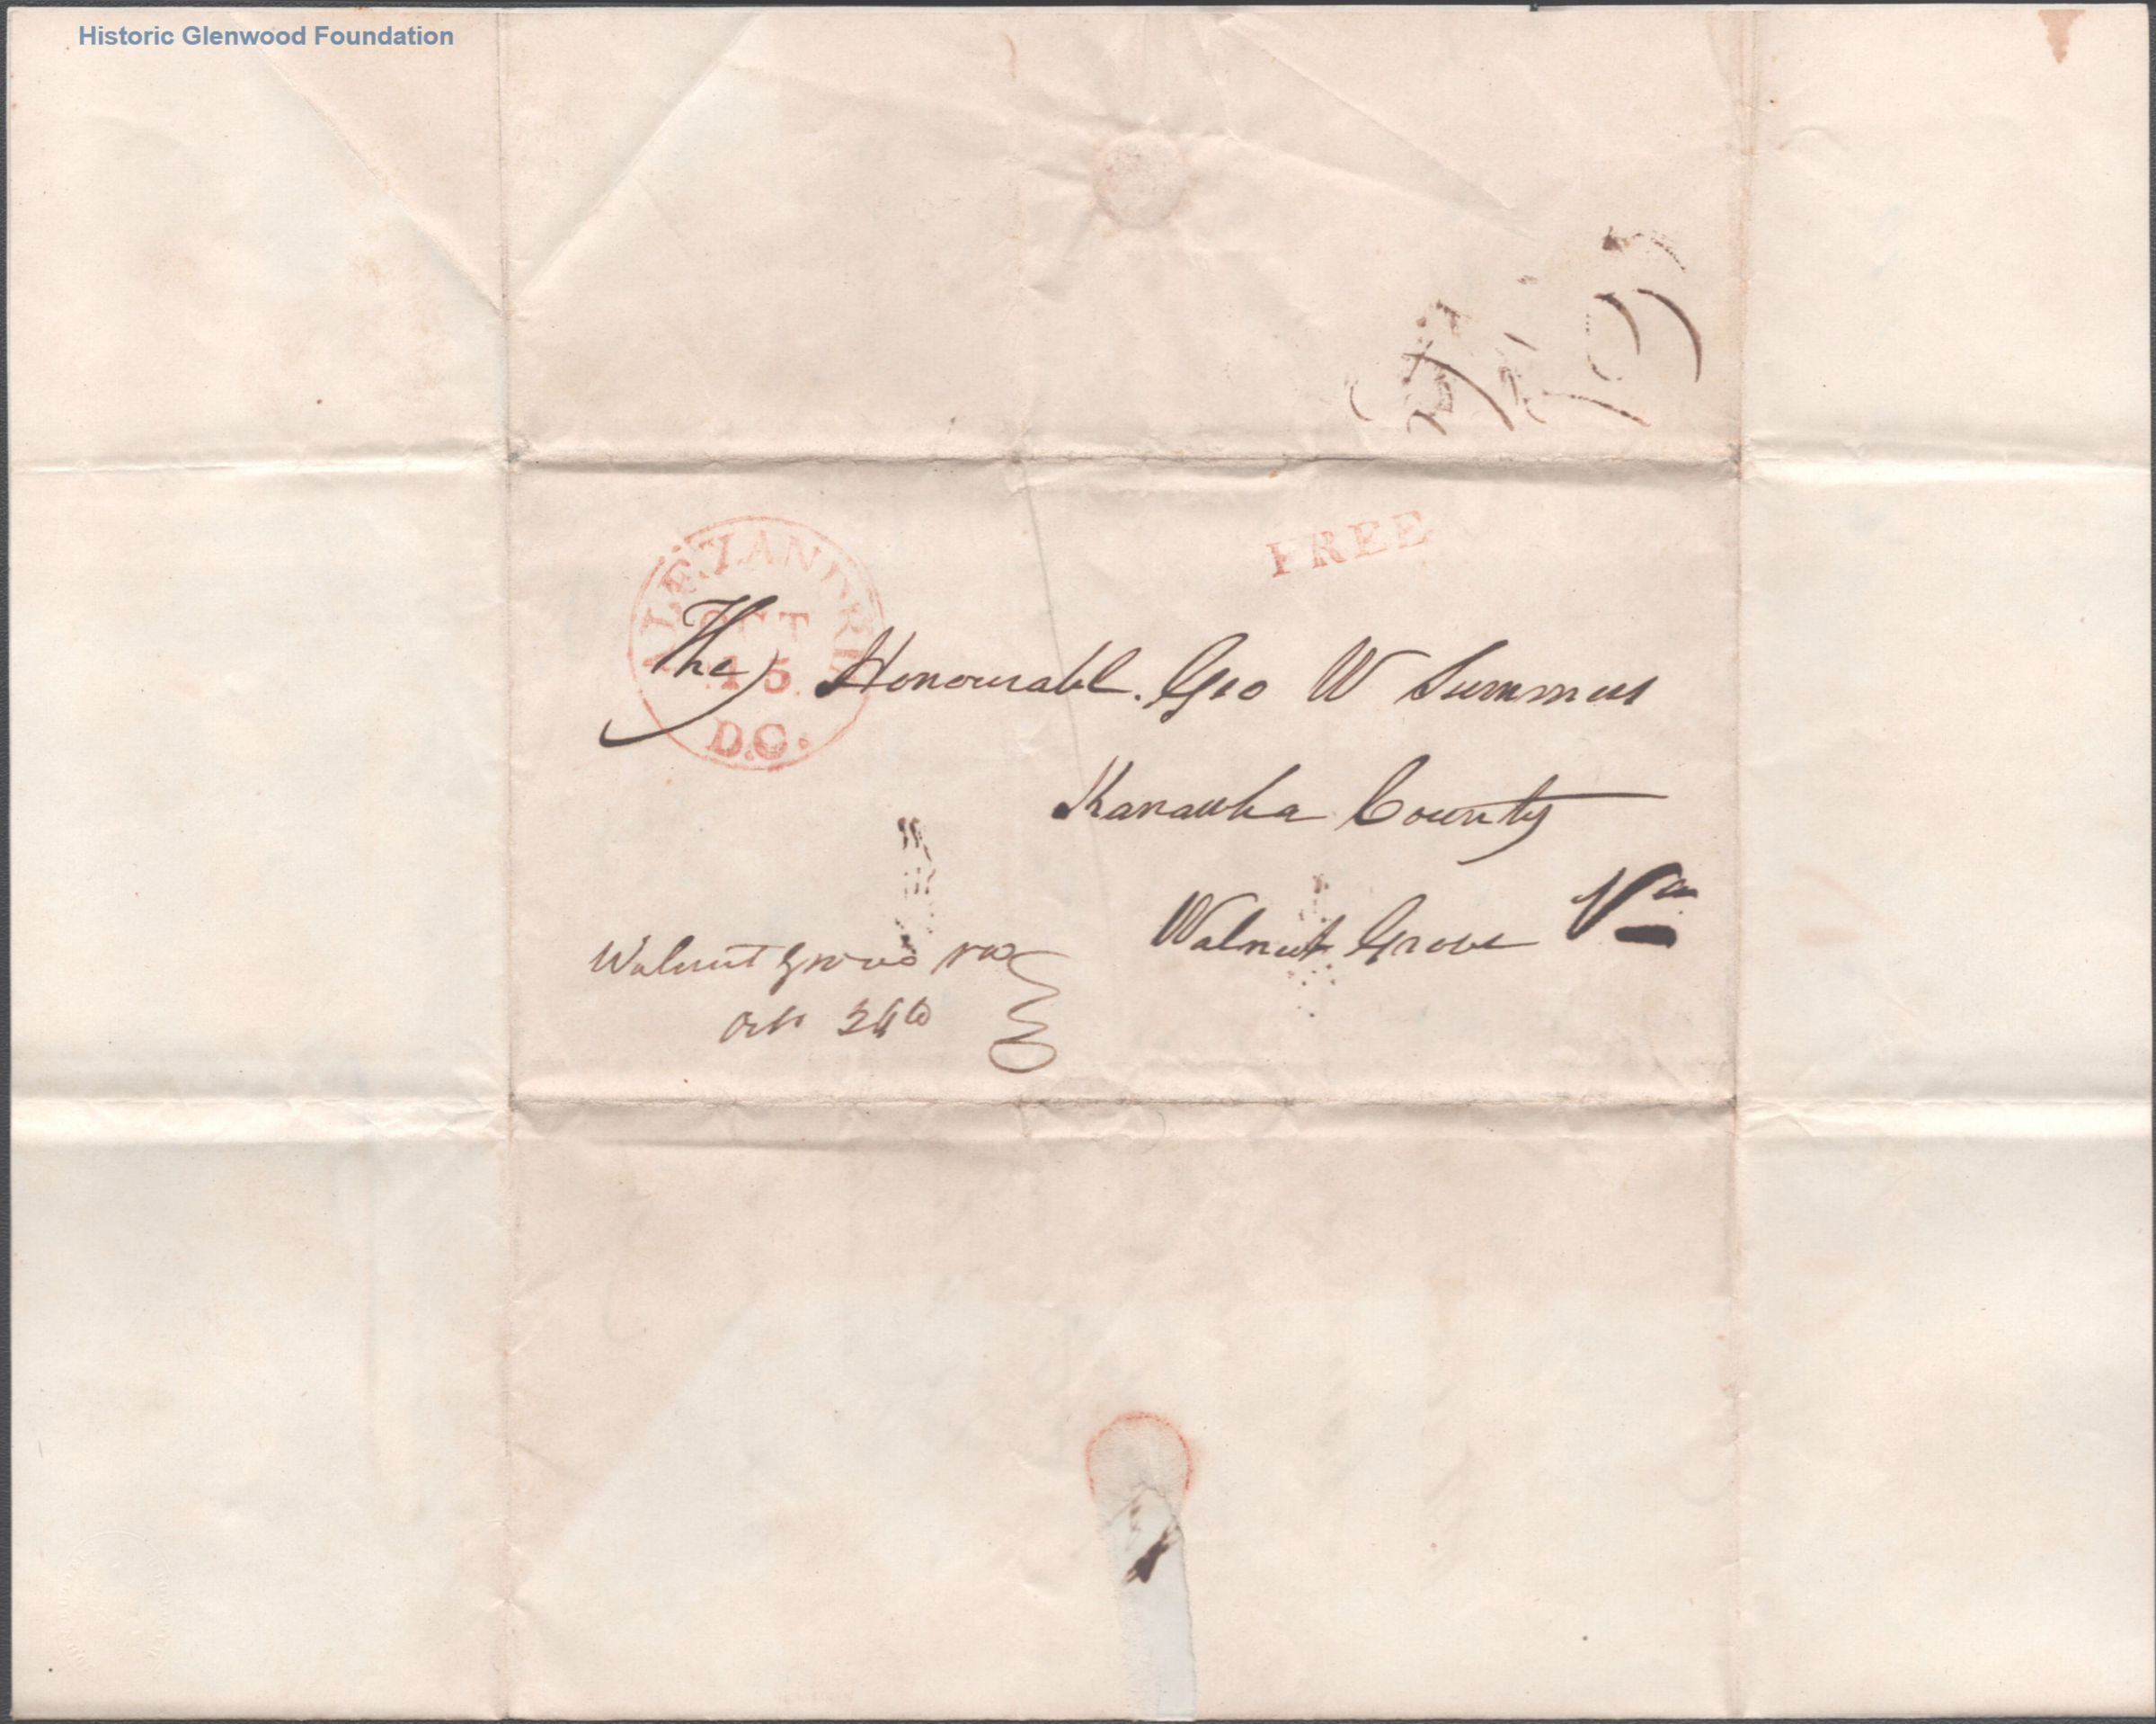 Historic Glenwood Foundation
FREE
ALEXANDRIA
OCT
15
D.C.
The Honourable Geo W Summers
Kanawha County
Walnut Grove Va
Walnut Grove Va
Oct